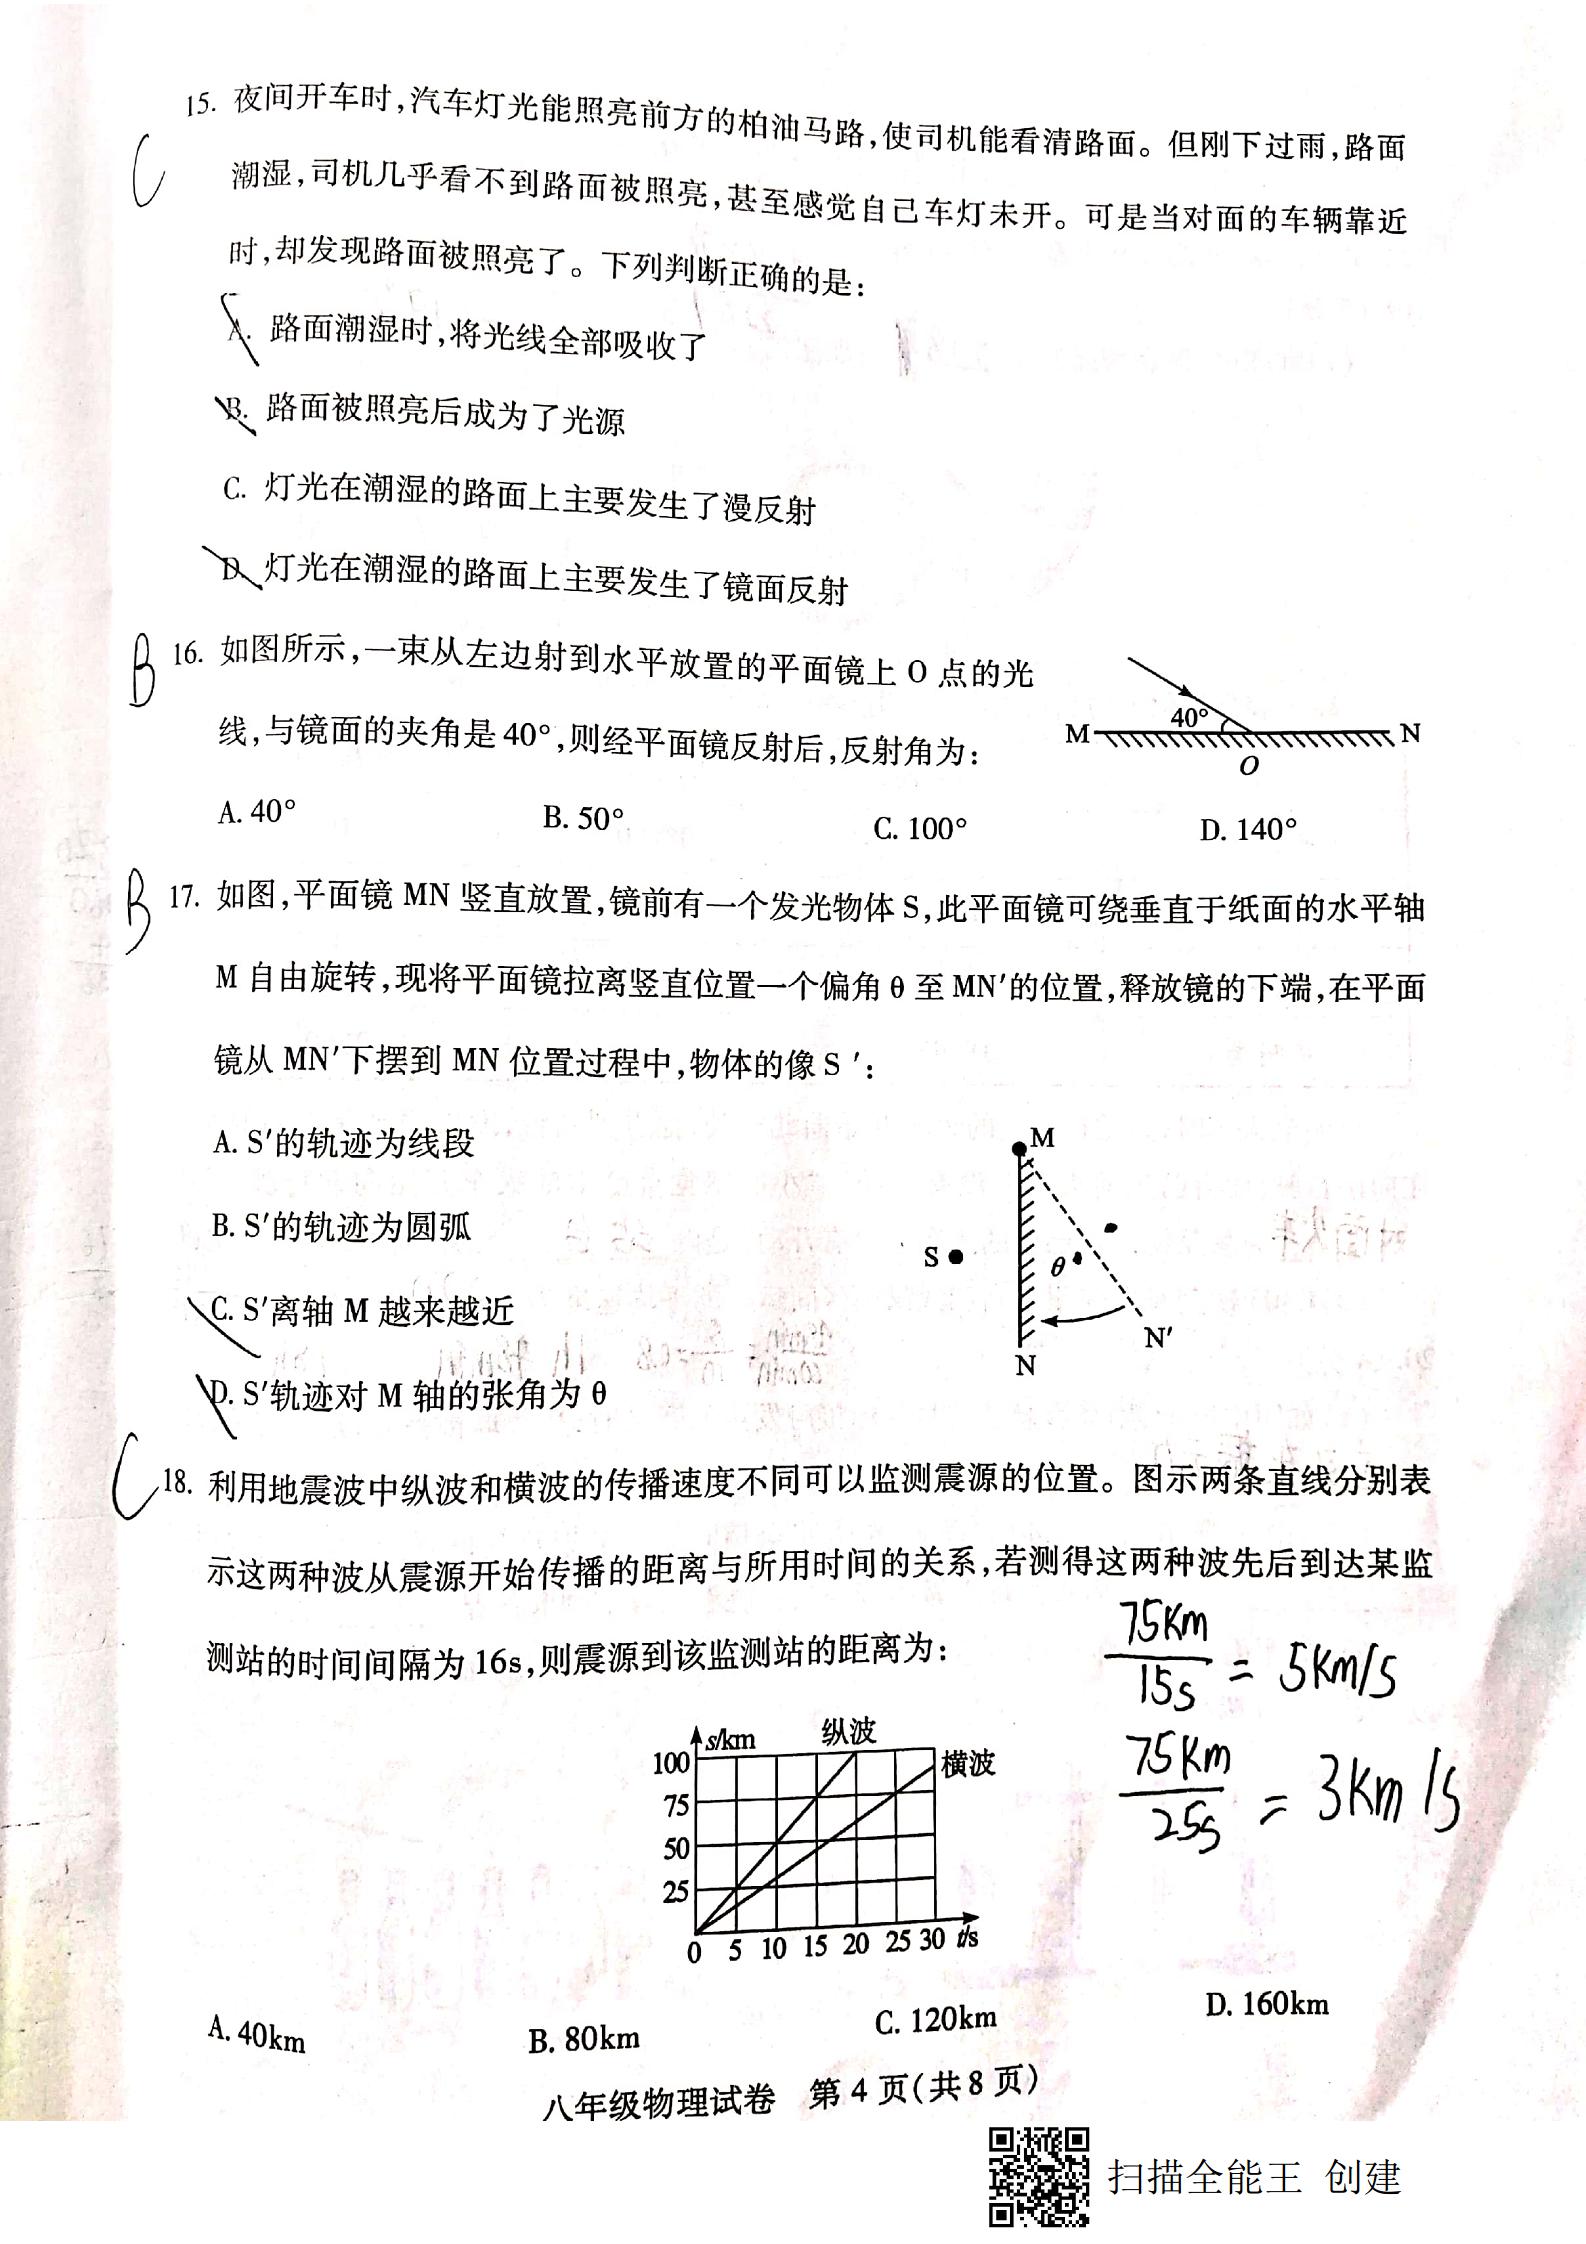 15. 夜间开车时,汽车灯光能照亮前方的柏油马路,使司机能看清路面。但刚下过雨,路面
C
潮湿,司机几乎看不到路面被照亮,甚至感觉自己车灯未开。可是当对面的车辆靠近
时,却发现路面被照亮了。下列判断正确的是:
A. 路面潮湿时,将光线全部吸收了
B. 路面被照亮后成为了光源
C. 灯光在潮湿的路面上主要发生了漫反射
D. 灯光在潮湿的路面上主要发生了镜面反射
B
16. 如图所示,一束从左边射到水平放置的平面镜上 O 点的光
线,与镜面的夹角是 40°,则经平面镜反射后,反射角为:
40°
M N
O
A. 40° B. 50° C. 100° D. 140°
B
17. 如图,平面镜 MN 竖直放置,镜前有一个发光物体 S,此平面镜可绕垂直于纸面的水平轴
M 自由旋转,现将平面镜拉离竖直位置一个偏角 θ 至 MN′的位置,释放镜的下端,在平面
镜从 MN′下摆到 MN 位置过程中,物体的像 S ′:
A. S′的轨迹为线段
B. S′的轨迹为圆弧
C. S′离轴 M 越来越近
D. S′轨迹对 M 轴的张角为 θ
M
S
θ
N′
N
C
18. 利用地震波中纵波和横波的传播速度不同可以监测震源的位置。图示两条直线分别表
示这两种波从震源开始传播的距离与所用时间的关系,若测得这两种波先后到达某监
测站的时间间隔为 16s,则震源到该监测站的距离为:
75Km
15s
= 5Km/s
75Km
25s
= 3Km/s
s/km 纵波
100 横波
75
50
25
0 5 10 15 20 25 30 t/s
A. 40km B. 80km C. 120km D. 160km
八年级物理试卷 第 4 页(共 8 页)
扫描全能王 创建